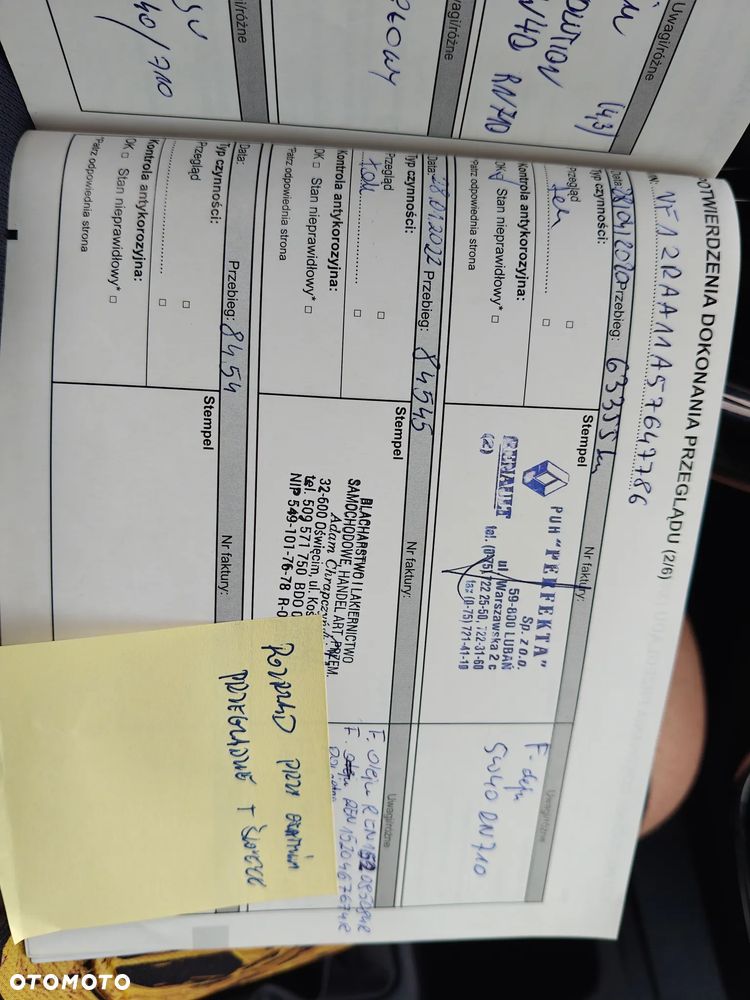 Uwagi/różne
(4,3)
RN710
Uwagi/różne
Uwagi/różne
40/710
POTWIERDZENIA DOKONANIA PRZEGLĄDU (2/6)
VIN: VF12RAA11A57647786
Data: 28/04/2020 Przebieg: 63355 km Nr faktury: Uwagi/różne
Typ czynności: Stempel
Przegląd
Kontrola antykorozyjna:
OK Stan nieprawidłowy*
*Patrz odpowiednia strona
PUH "PERFEKTA"
Sp. z o.o.
59-800 LUBAŃ
ul. Warszawska 2 c
tel. (0-75) 722 25-50, 722-31-60
fax (0-75) 721-41-19
RENAULT
(2)
5W40 RN710
Data: 28.01.2022 Przebieg: 84545 Nr faktury: Uwagi/różne
Typ czynności: Stempel
Przegląd
Kontrola antykorozyjna:
OK Stan nieprawidłowy*
*Patrz odpowiednia strona
BLACHARSTWO I LAKIERNICTWO
SAMOCHODOWE, HANDEL ART. PRZEM.
Adam
32-600 Oświęcim, ul.
tel. 509 571 750 BDO
NIP 549-101-76-78
F. oleju REN152085094R
F. REN152046767R
Data: Przebieg: 8454 Nr faktury:
Typ czynności: Stempel
Przegląd
Kontrola antykorozyjna:
OK Stan nieprawidłowy*
*Patrz odpowiednia strona
ROZRZĄD PRZY
OTOMOTO